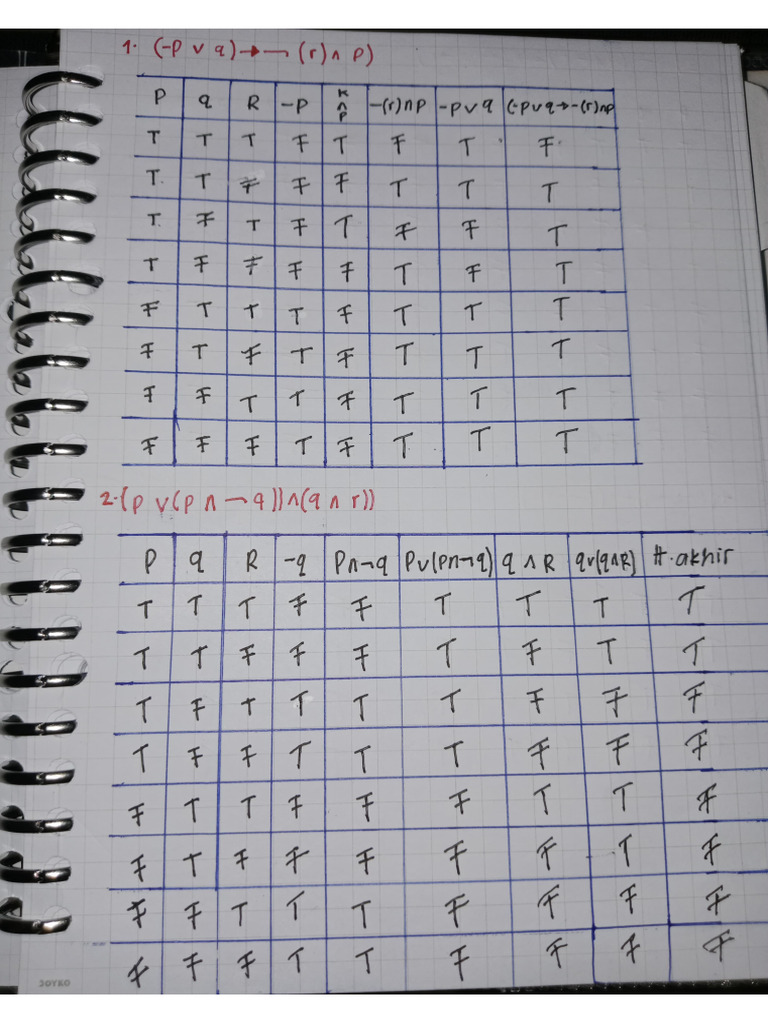 1. (-p v q) → ¬ (r) ∧ p)
P q R -P R ∧ P -(r)∧p -p v q (-p v q → -(r)∧p
T T T F T F T F
T T F F F T T T
T F T F T F F T
T F F F F T F T
F T T T F T T T
F T F T F T T T
F F T T F T T T
F F F T F T T T
2. (p v (p ∧ ¬ q)) ∧ (q ∧ r))
P q R -q P∧¬q Pv(P∧¬q) q ∧ R qv(q∧R) H. akhir
T T T F F T T T T
T T F F F T F T T
T F T T T T F F F
T F F T T T F F F
F T T F F F T T F
F T F F F F F T F
F F T T T F F F F
F F F T T F F F F
JOYKO